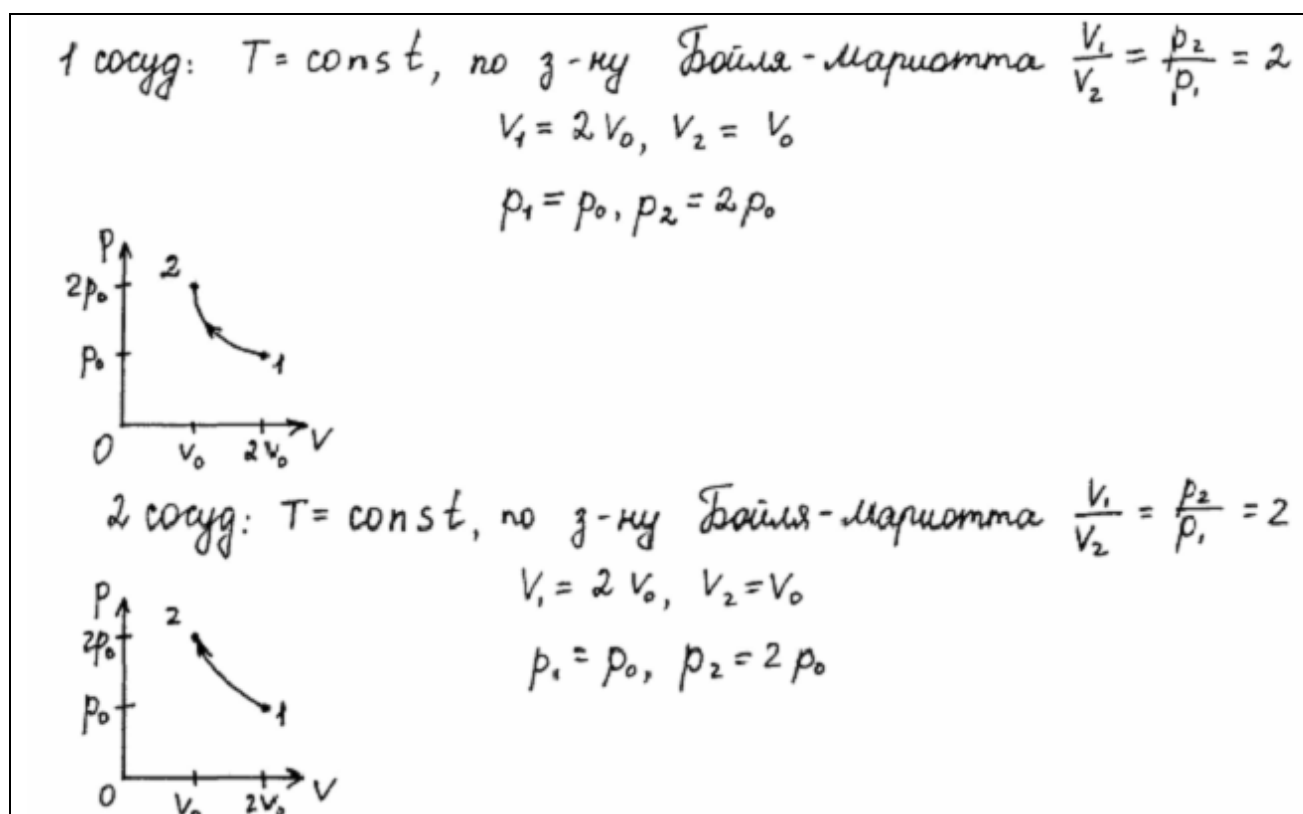 1 сосуд: T = const, по з-ну Бойля-Мариотта V₁/V₂ = p₂/p₁ = 2
V₁ = 2V₀, V₂ = V₀
p₁ = p₀, p₂ = 2p₀
P
2
2p₀
p₀
1
0
V₀
2V₀
V
2 сосуд: T = const, по з-ну Бойля-Мариотта V₁/V₂ = p₂/p₁ = 2
V₁ = 2V₀, V₂ = V₀
p₁ = p₀, p₂ = 2p₀
P
2
2p₀
p₀
1
0
V₀
2V₀
V